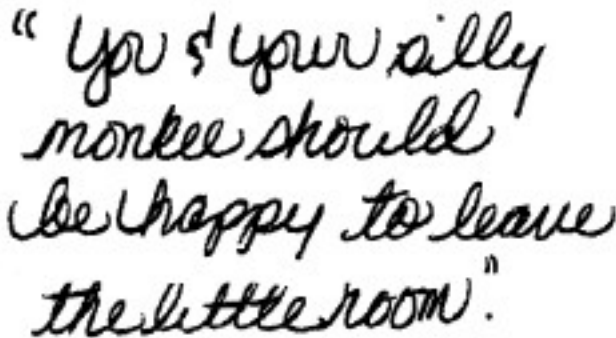 "You & your silly
monkee should
be happy to leave
the little room".